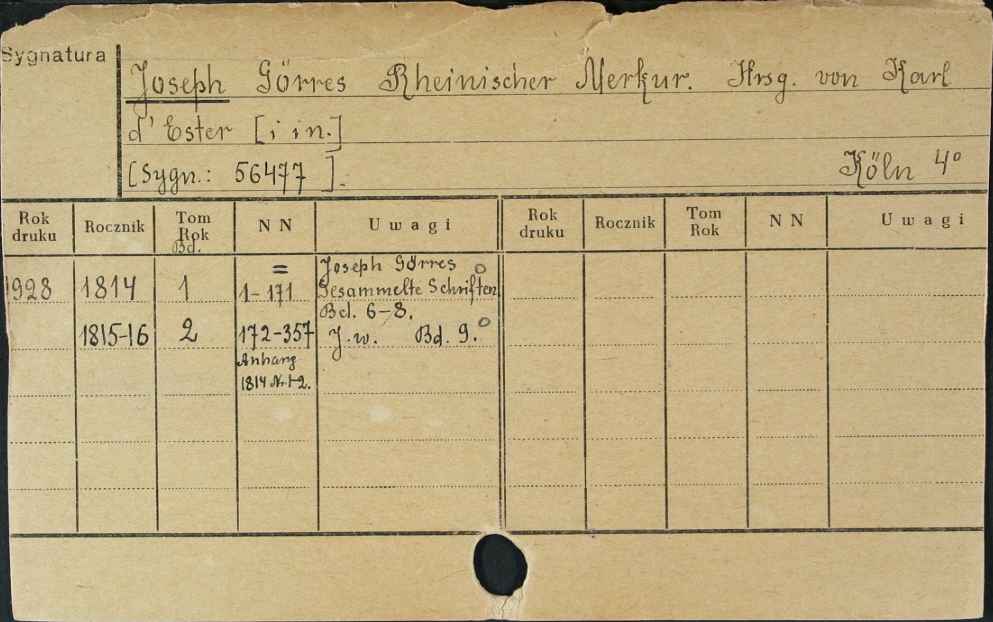 Sygnatura
Joseph Görres Rheinischer Merkur. Hrsg. von Karl
d'Ester [i in.]
[Sygn.: 56477 ]. Köln 4°
Rok druku Rocznik Tom Rok Bd. NN Uwagi Rok druku Rocznik Tom Rok NN Uwagi
1928 1814 1 1-171 = Joseph Görres
Gesammelte Schriften
Bd. 6-8.
1815-16 2 172-357 J.w. Bd. 9.
Anhang
1814 Nr 1-2.